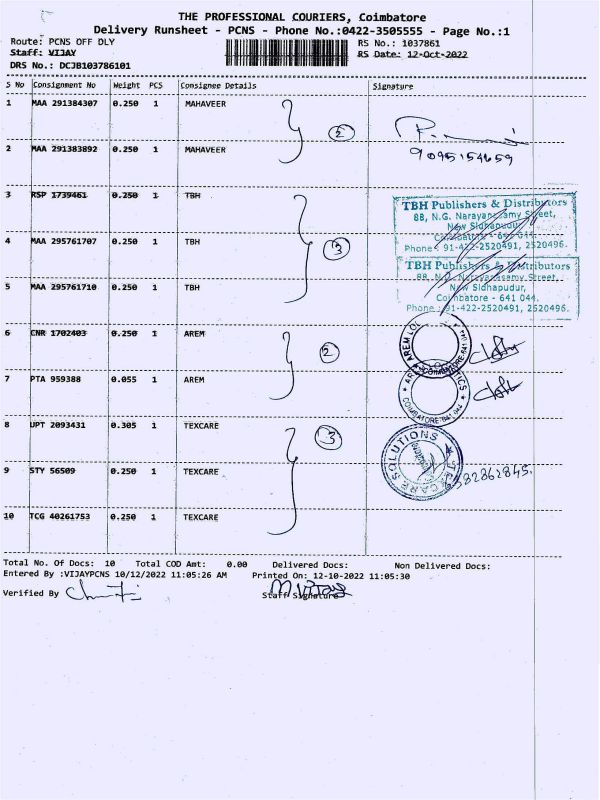 THE PROFESSIONAL COURIERS, Coimbatore
Delivery Runsheet - PCNS - Phone No.:0422-3505555 - Page No.:1
Route: PCNS OFF DLY
RS No.: 1037861
Staff: VIJAY
RS Date: 12-Oct-2022
DRS No.: DCJB103786101
S No Consignment No Weight PCS Consignee Details Signature
1 MAA 291384307 0.250 1 MAHAVEER
2
2 MAA 291383892 0.250 1 MAHAVEER
9095154659
3 RSP 1739461 0.250 1 TBH
TBH Publishers & Distributors
88, N.G. Narayanasamy Street,
New Sidhapudur,
Coimbatore - 641 044.
Phone : 91-422-2520491, 2520496.
4 MAA 295761707 0.250 1 TBH
3
TBH Publishers & Distributors
88, N.G. Narayanasamy Street,
New Sidhapudur,
Coimbatore - 641 044.
Phone : 91-422-2520491, 2520496.
5 MAA 295761710 0.250 1 TBH
6 CNR 1702403 0.250 1 AREM
2
7 PTA 959388 0.055 1 AREM
COIMBATORE 641 044
8 UPT 2093431 0.305 1 TEXCARE
3
TEXCARE SOLUTIONS
9 STY 56509 0.250 1 TEXCARE
10 TCG 40261753 0.250 1 TEXCARE
Total No. Of Docs: 10 Total COD Amt: 0.00 Delivered Docs: Non Delivered Docs:
Entered By :VIJAYPCNS 10/12/2022 11:05:26 AM Printed On: 12-10-2022 11:05:30
Verified By
Staff Signature